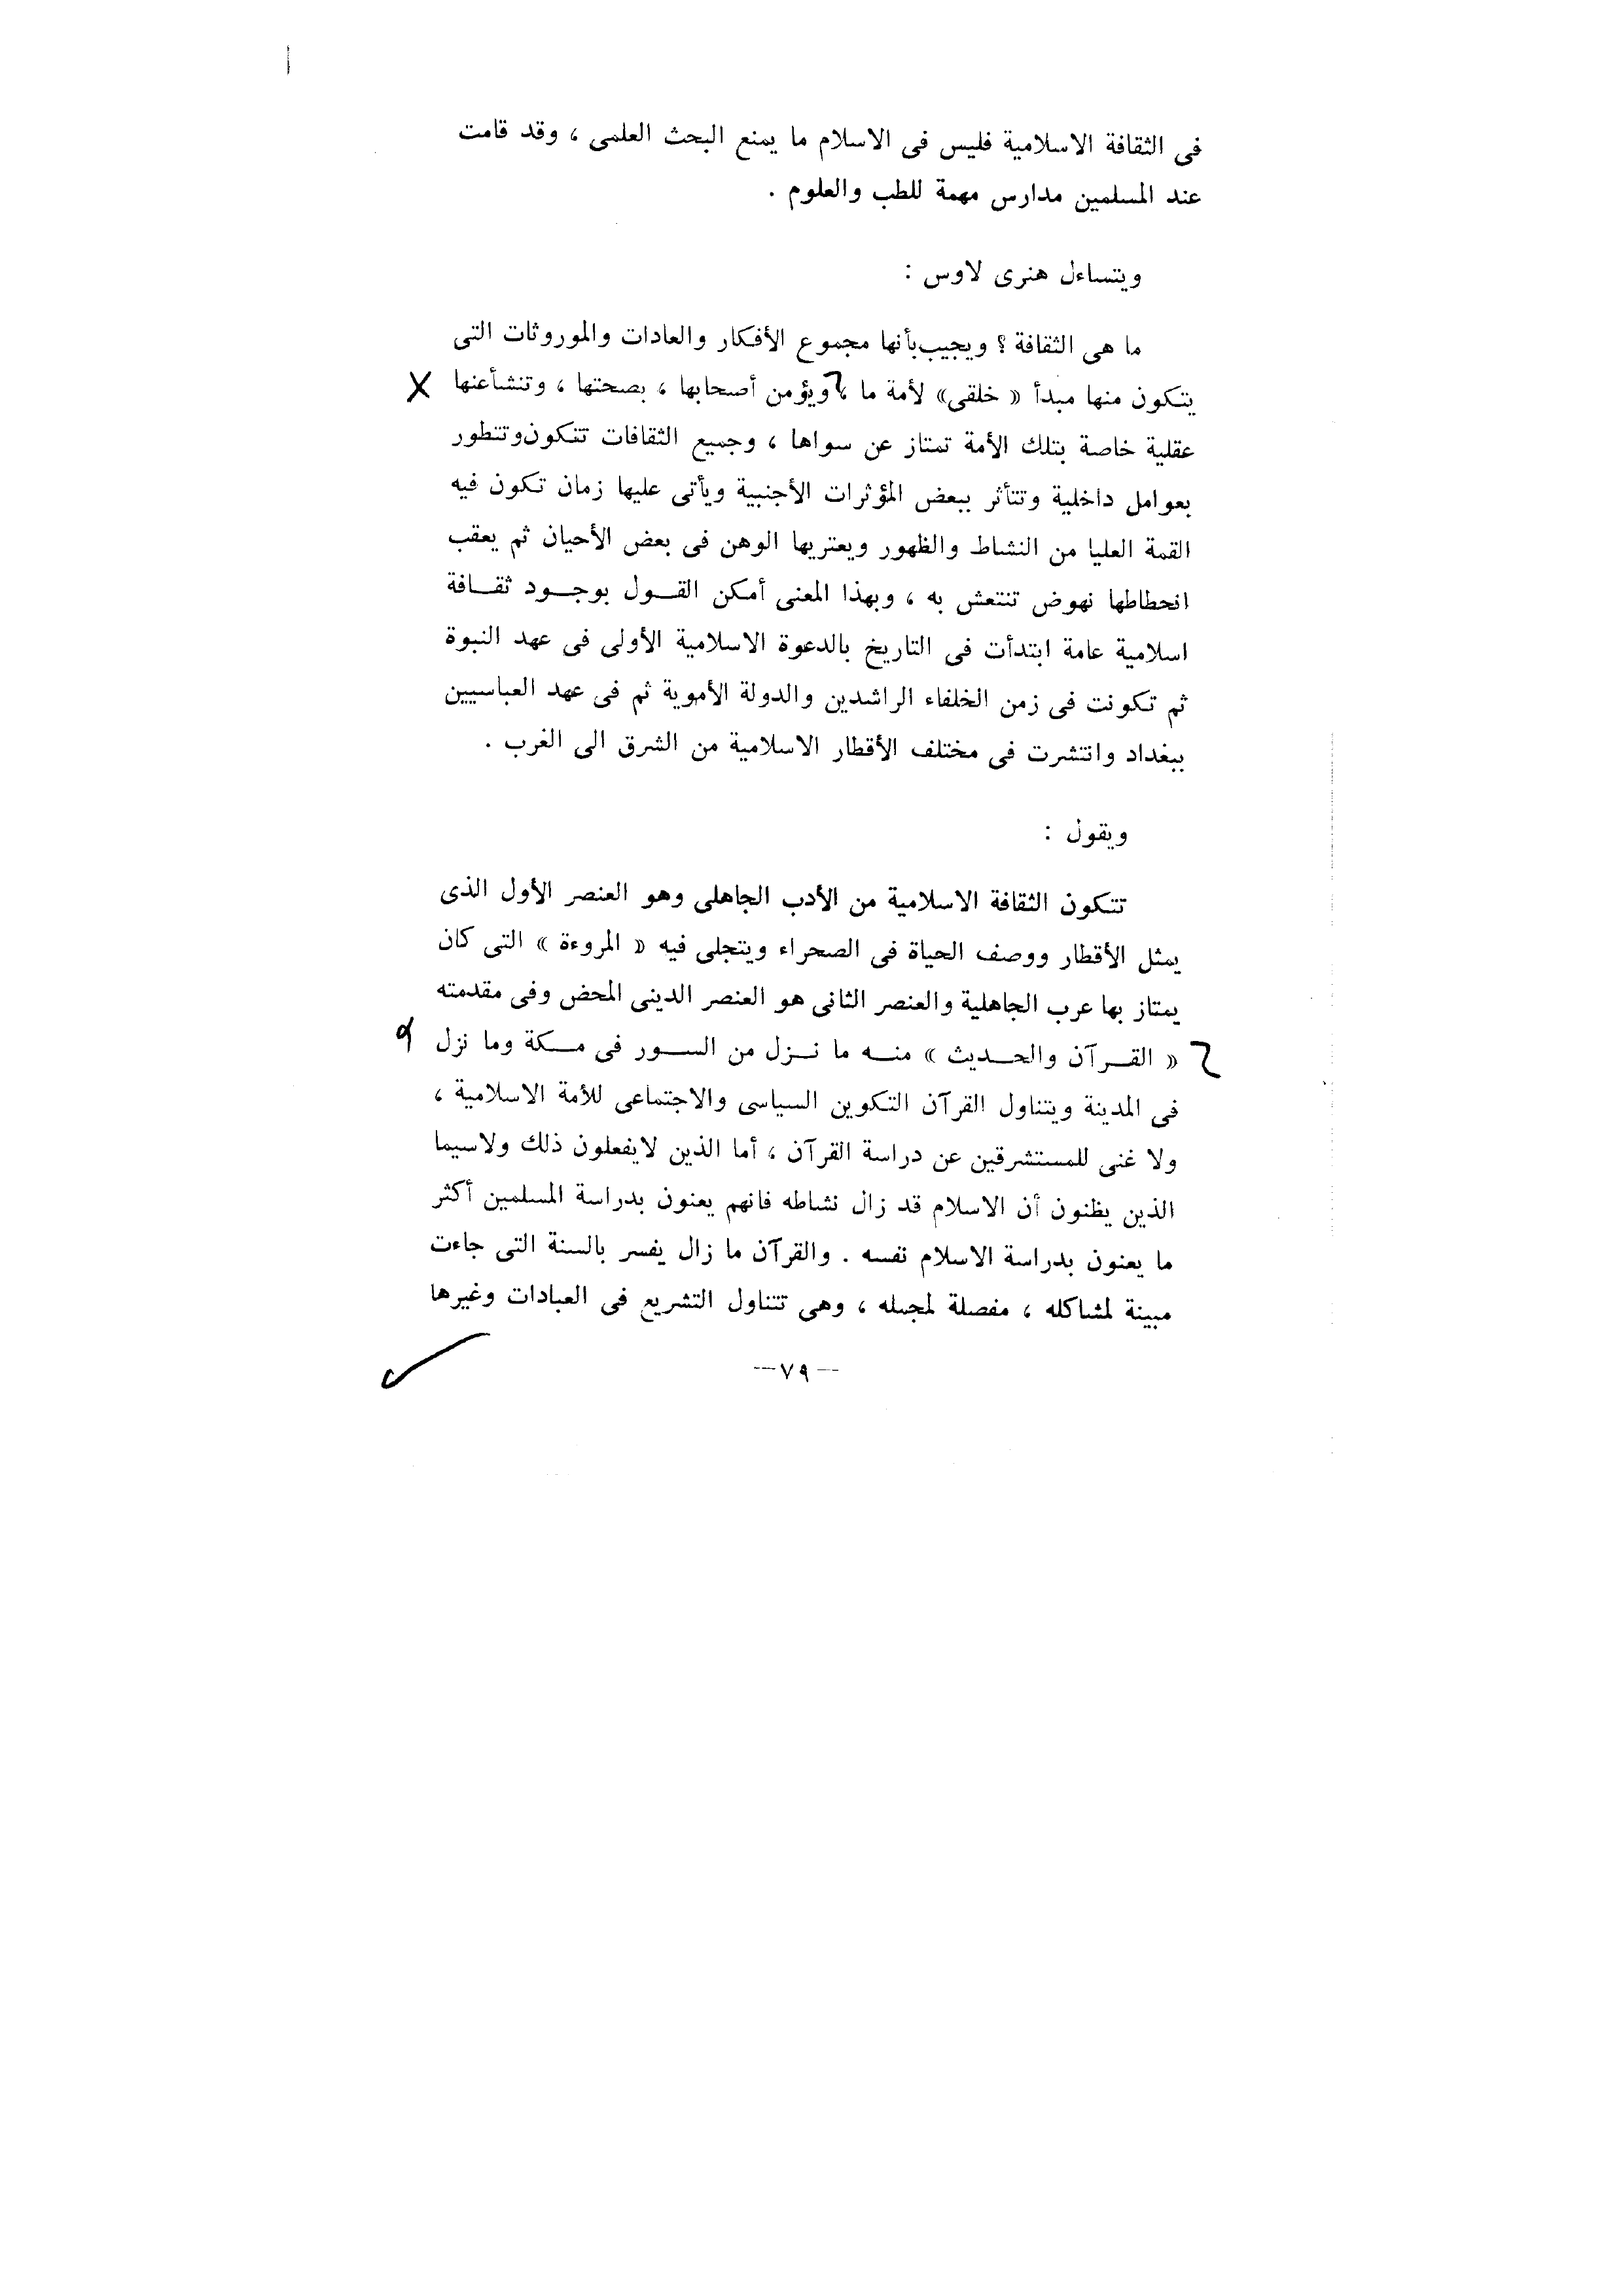 فى الثقافة الاسلامية فليس فى الاسلام ما يمنع البحث العلمى ، وقد قامت
عند المسلمين مدارس مهمة للطب والعلوم .
ويتساءل هنرى لاوس :
ما هى الثقافة ؟ ويجيب بأنها مجموع الأفكار والعادات والموروثات التى
يتكون منها مبدأ « خلقى» لأمة ما ، ويؤمن أصحابها ، بصحتها ، وتنشأعنها
عقلية خاصة بتلك الأمة تمتاز عن سواها ، وجميع الثقافات تتكون وتتطور
بعوامل داخلية وتتأثر ببعض المؤثرات الأجنبية ويأتى عليها زمان تكون فيه
القمة العليا من النشاط والظهور ويعتريها الوهن فى بعض الأحيان ثم يعقب
انحطاطها نهوض تنتعش به ، وبهذا المعنى أمكن القـول بوجـود ثقـافة
اسلامية عامة ابتدأت فى التاريخ بالدعوة الاسلامية الأولى فى عهد النبوة
ثم تكونت فى زمن الخلفاء الراشدين والدولة الأموية ثم فى عهد العباسيين
ببغداد وانتشرت فى مختلف الأقطار الاسلامية من الشرق الى الغرب .
ويقول :
تتكون الثقافة الاسلامية من الأدب الجاهلى وهو العنصر الأول الذى
يمثل الأقطار ووصف الحياة فى الصحراء ويتجلى فيه « المروءة » التى كان
يمتاز بها عرب الجاهلية والعنصر الثانى هو العنصر الدينى المحض وفى مقدمته
« القـرآن والحـديث » منـه ما نـزل من السـور فى مـكة وما نزل
فى المدينة ويتناول القرآن التكوين السياسى والاجتماعى للأمة الاسلامية ،
ولا غنى للمستشرقين عن دراسة القرآن ، أما الذين لايفعلون ذلك ولاسيما
الذين يظنون أن الاسلام قد زال نشاطه فانهم يعنون بدراسة المسلمين أكثر
ما يعنون بدراسة الاسلام نفسه . والقرآن ما زال يفسر بالسنة التى جاءت
مبينة لمشاكله ، مفصلة لمجمله ، وهى تتناول التشريع فى العبادات وغيرها
—٧٩—